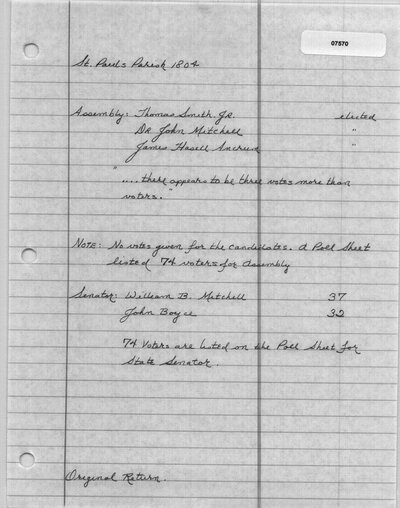 07570
St. Pauls Parish 1804
Assembly: Thomas Smith. JR. elected
DR John Mitchell "
James Hasell Ancrum "
"
.... there appears to be three votes more than
voters."
NOTE: No votes given for the candidates. A Poll Sheet
listed 74 voters for Assembly
Senator: William B. Mitchell 37
John Boyce 32
74 Voters are listed on the Poll Sheet for
State Senator.
Original Return.